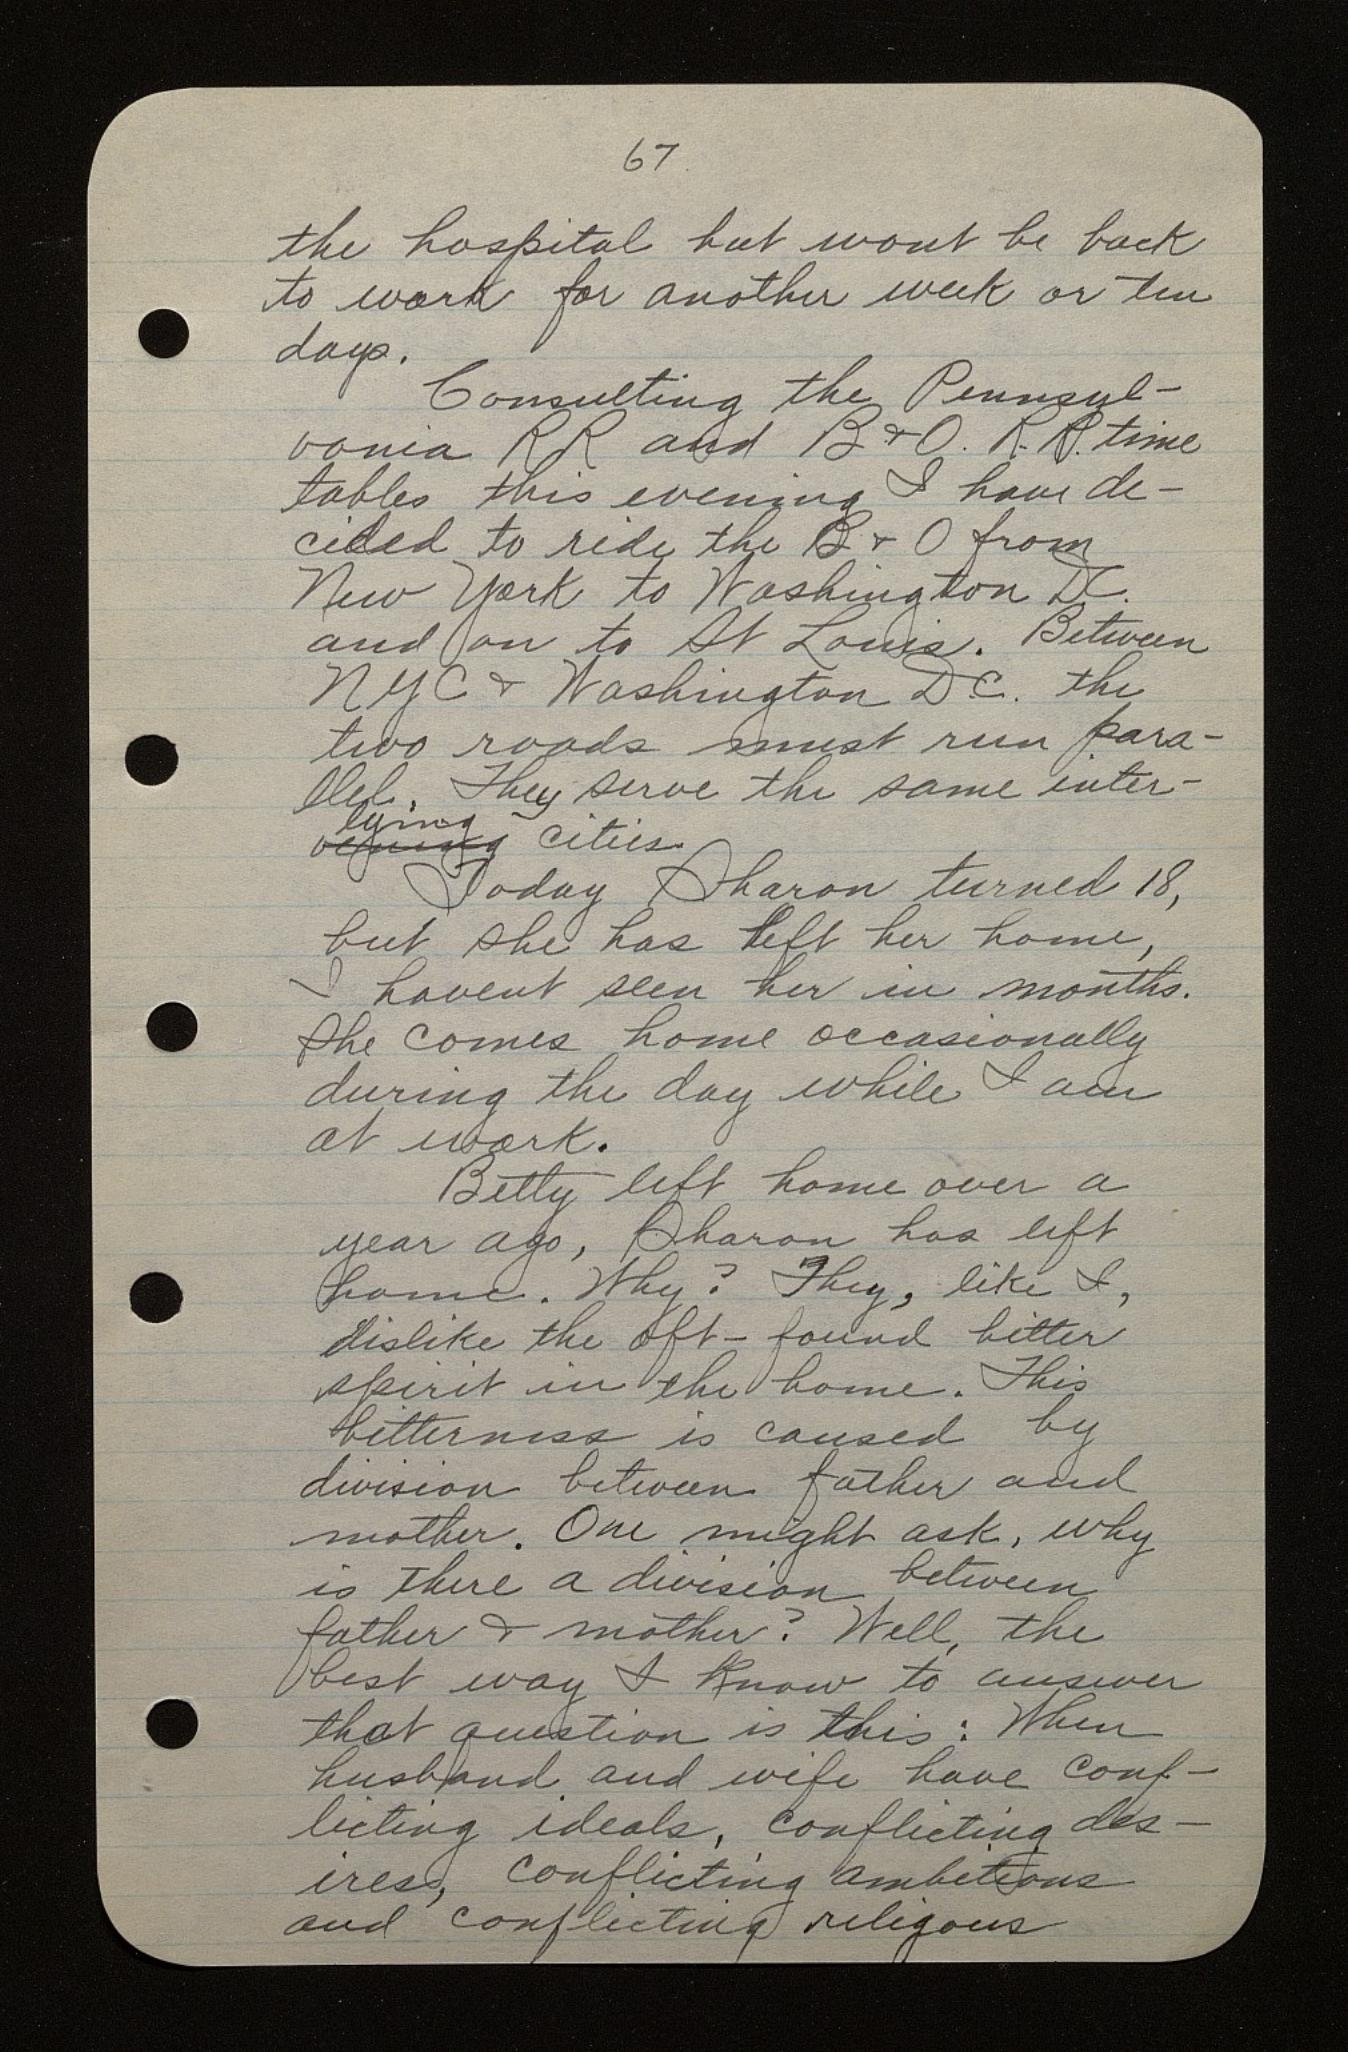 67.
the hospital but wont be back
to work for another week or ten
days.
Consulting the Pennsyl-
vania RR and B & O. R. R. time
tables this evening I have de-
cided to ride the B & O from
New York to Washington DC.
and on to St Louis. Between
NYC & Washington D.C. the
two roads must run para-
llel. They serve the same inter-
lying
vening cities.
Today Sharon turned 18,
but she has left her home,
I havent seen her in months.
She comes home occasionally
during the day while I am
at work.
Betty left home over a
year ago, Sharon has left
home. Why? They, like I,
dislike the oft-found bitter
spirit in the home. This
bitterness is caused by
division between father and
mother. One might ask, why
is there a division between
father & mother? Well, the
best way I know to answer
that question is this: When
husband and wife have conf-
licting ideals, conflicting des-
ires, conflicting ambitions
and conflicting religous